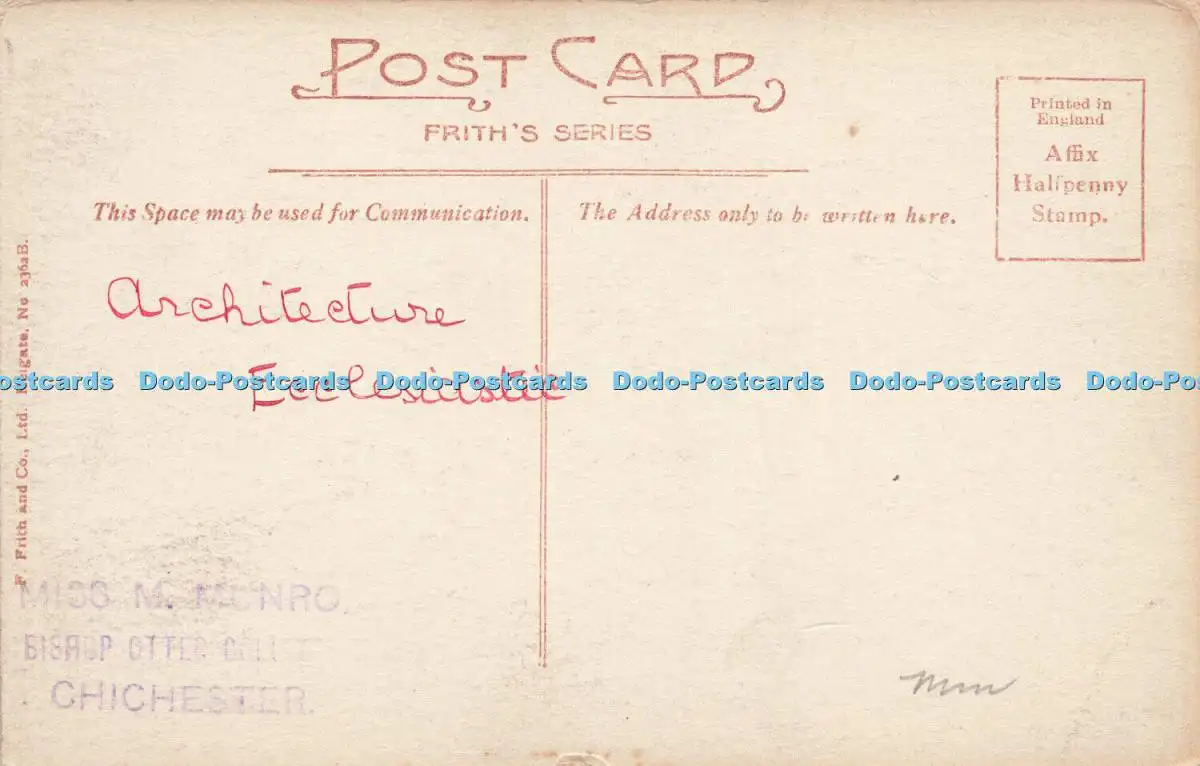 POST CARD
FRITH'S SERIES
Printed in
England
Affix
Halfpenny
Stamp.
This Space may be used for Communication.
The Address only to be written here.
Architecture
Ecclesiastic
Dodo-Postcards Dodo-Postcards Dodo-Postcards Dodo-Postcards Dodo-Postcards Dodo-Po
F. Frith and Co., Ltd. Reigate. No 2362B.
MISS M. MUNRO.
BISHOP OTTER COLL
CHICHESTER.